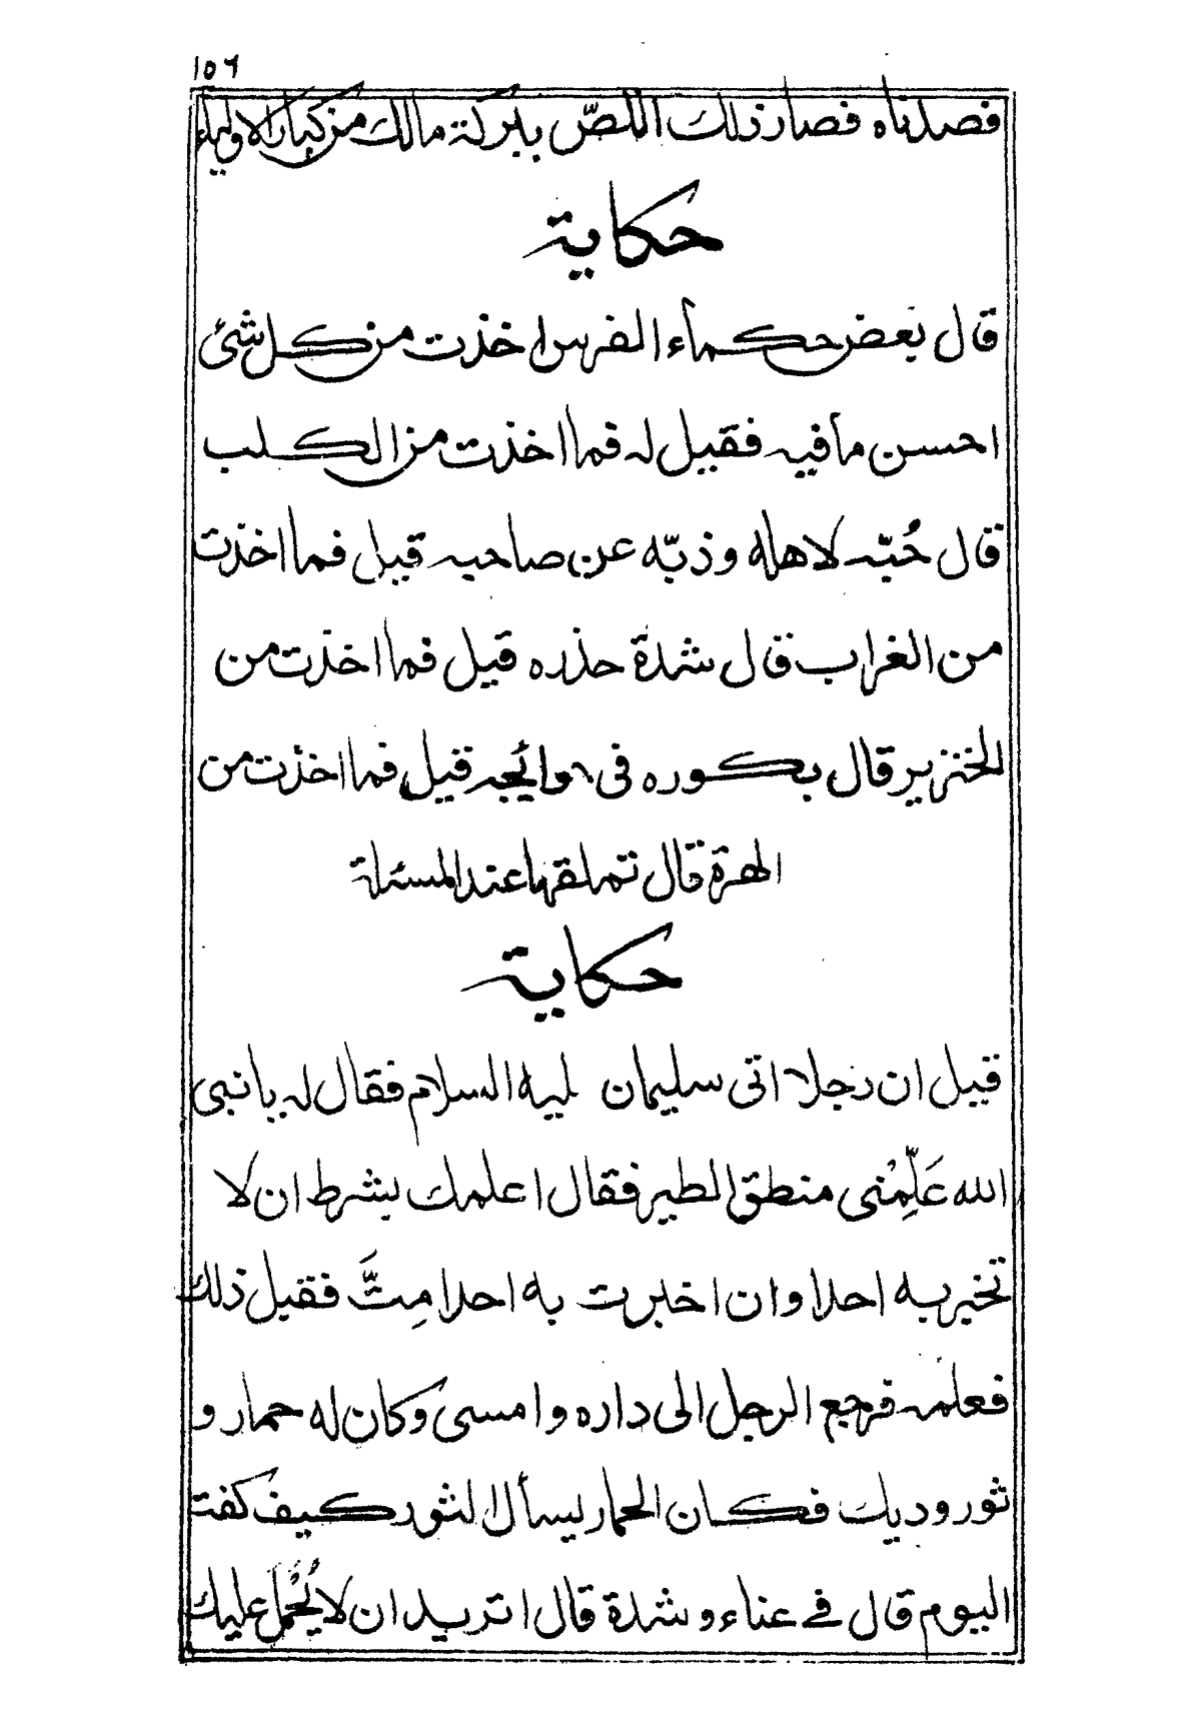 ١٥٦
فصدناه فصار ذلك اللص ببركة مالك من كبار الاولياء
حكاية
قال بعض حكماء الفرس اخذت من كل شئ
احسن ما فيه فقيل له فما اخذت من الكلب
قال حُبّه لاهله وذبّه عن صاحبه قيل فما اخذت
من الغراب قال شدة حذره قيل فما اخذت من
الخنزير قال بكوره فى حوائجه قيل فما اخذت من
الهرة قال تملقها عند المسئلة
حكاية
قيل ان رجلا اتى سليمان عليه السلام فقال له يا نبى
الله عَلِّمْنى منطق الطير فقال اعلمك بشرط ان لا
تخبر به احدا وان اخبرت به احدا مِتَّ فقبل ذلك
فعلمه فرجع الرجل الى داره وامسى وكان له حمار و
ثور وديك فكان الحمار يسأل الثور كيف كنت
اليوم قال فى عناء وشدة قال اتريد ان لا يُحْمَل عليك